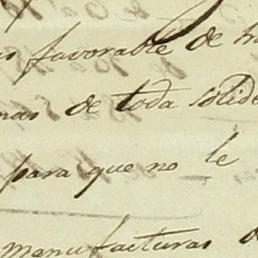 favorable de
mas de toda solide
para que no le
manufacturas